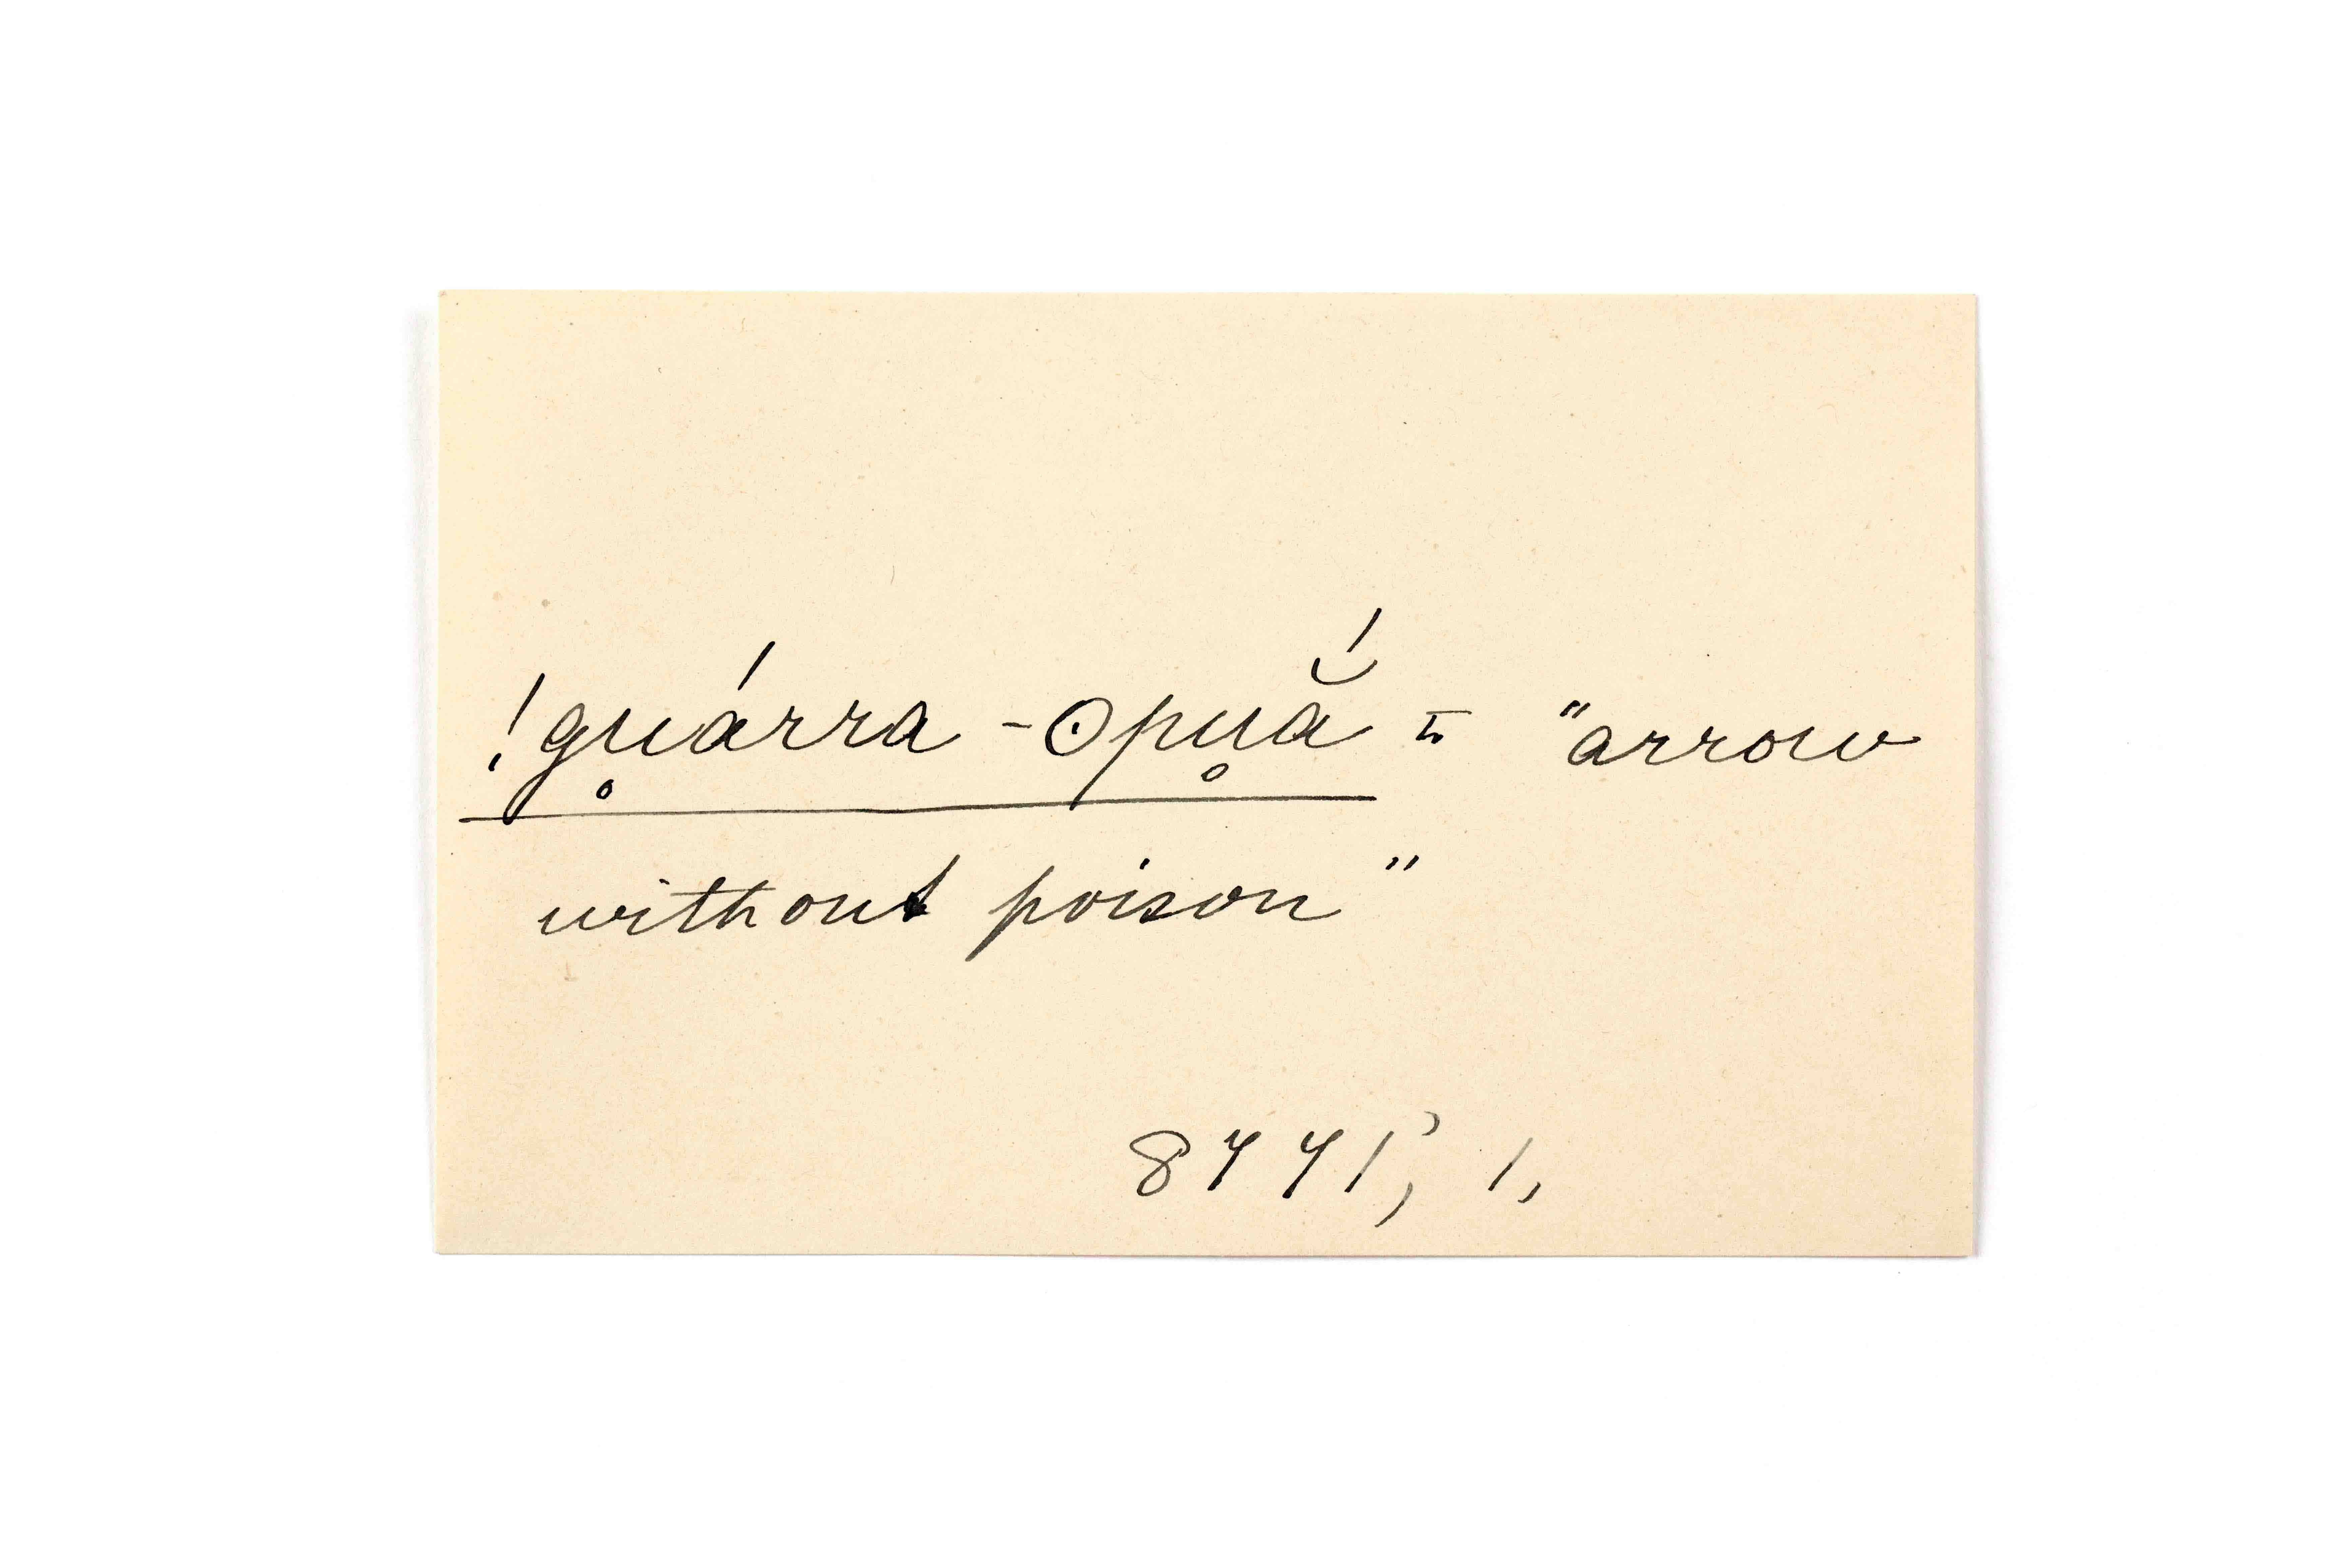 !gu̥árra-ʘpu̥ắ = "arrow
without poison"
8441; 1,